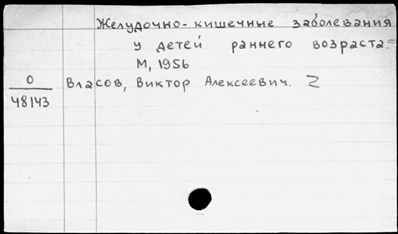 Желудочно-кишечные заболевания
у детей раннего возраста.
М, 1956
0 Власов, Виктор Алексеевич. 2
48143